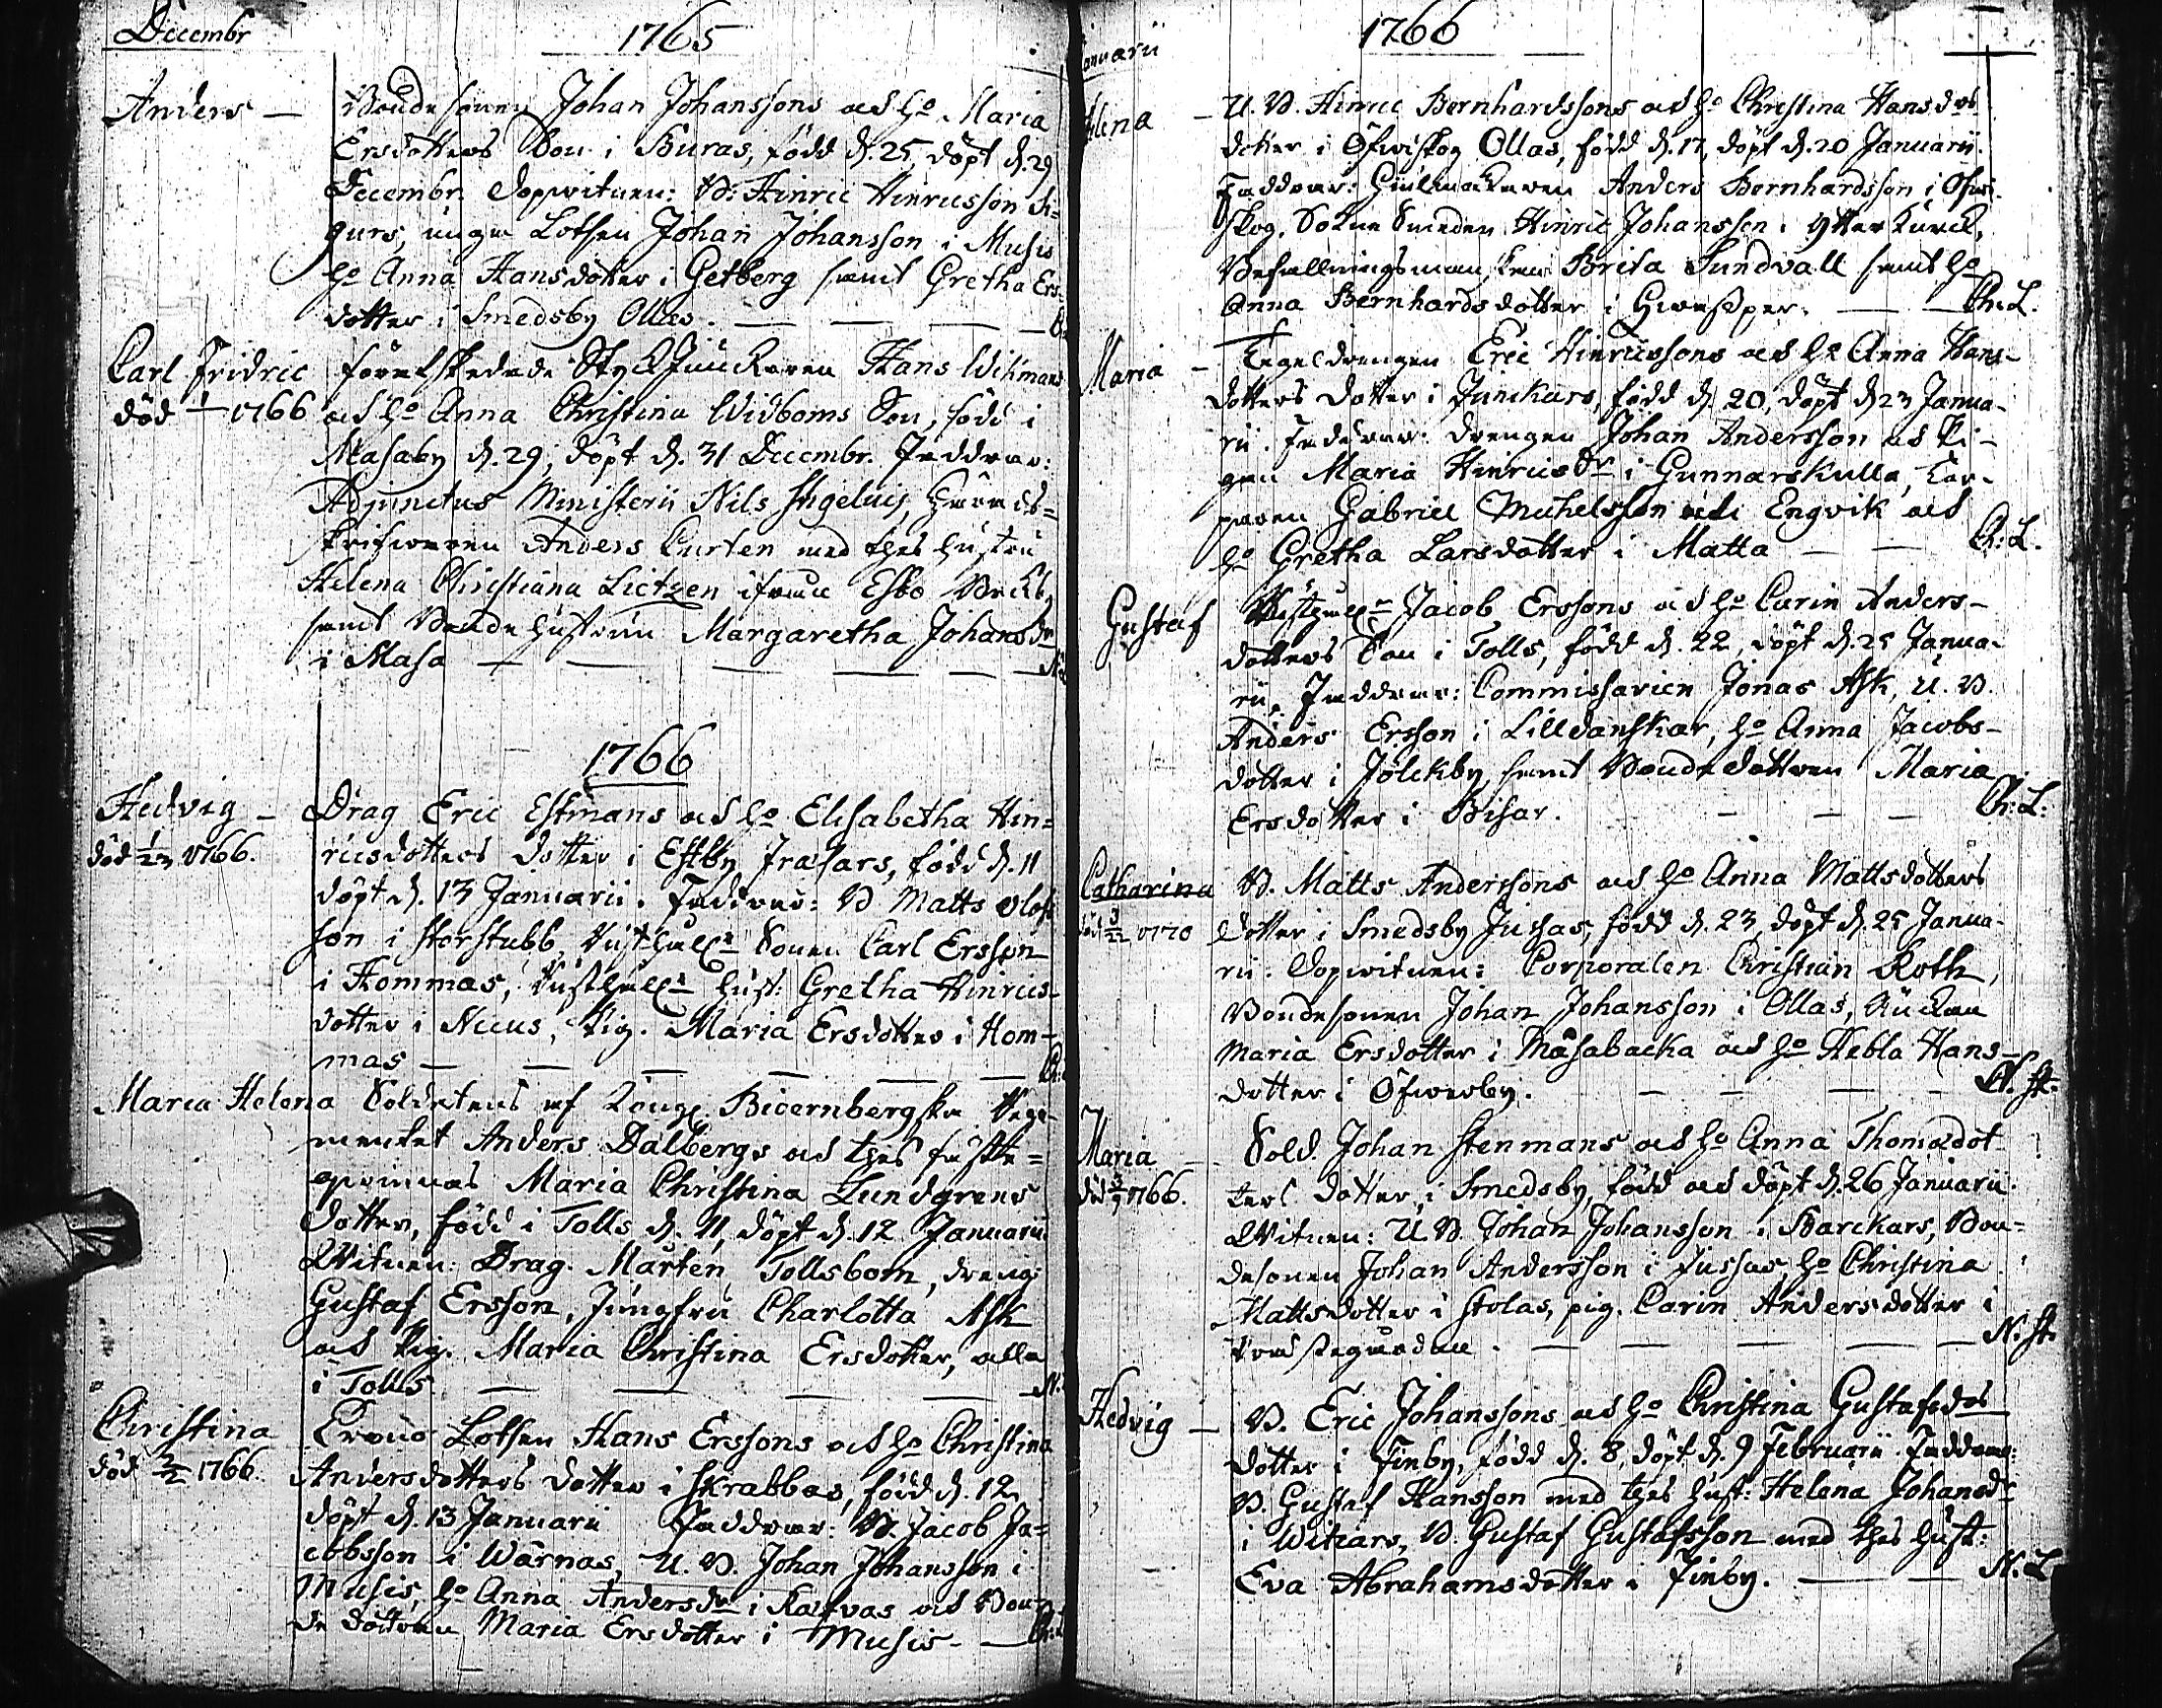 Decembr
1765
Anders — Bonde sonen Johan Johanssons och H:o Maria
Ersdotters Son i Buras, född d. 25, döpt d. 29
Decembr. Dopwitnen: B: Hinric Hinricsson Si=
gurs, unga Lotsen Johan Johansson i Musis
H:o Anna Hansdotter i Getberg samt Gretha Ers-
dotter i Smedsby Ollas.
Carl Fridric
död 1766
Styckjunckaren Hans Wikmans
och H:o Anna Christina Widboms Son, född i
Masaby d. 29, döpt d. 31 Decembr. Faddrar:
Adjunctus Ministerii Nils Härads=
skrifwaren Anders Curten med thes hustru
Helena Christiana Lietzen ifrån Esbo
samt Bonde hustrun Margaretha Johansdr
i Masa
1766
Hedvig —
död 1/23 1766.
Drag Eric Estmans och H:o Elisabetha Hin=
ricsdotters dotter i Estby född d. 11
döpt d. 13 Januarii. Faddrar: B Matts Olofs
son i Storstubb, Rusthåll:s Sonen Carl Ersson
i Hommas, Rusthåll:s hust: Gretha Hinrics-
dotter i Neeus, Pig. Maria Ersdotter i Hom-
mas
Maria Helena Soldatens af Kongl. Bioernbergska Rege-
mentet Anders Dalbergs och thes fäste=
qvinnas Maria Christina Lundgrens
dotter, född i Tolls d. 11, döpt d. 12 Januarii
Witnen: Drag. Mårten Tollsbom, dreng
Gustaf Ersson, Jungfru Charlotta Ask
och Pig. Maria Christina Ersdotter, alla
i Tolls
Christina
död 2/2 1766.
Lotsen Hans Erssons och H:o Christina
Andersdotters dotter i Skrabbas, född d. 12
döpt d. 13 Januarii Faddrar: B. Jacob Ja=
cobsson i Wårnas, U. B. Johan Johansson i
Musis, H:o Anna Andersdr i Rafvas och Bon-
de dottren Maria Ersdotter i Musis.
Januarii
1766
Helena — U. B. Hinric Bernhardssons och H:o Christina Hansdrs
dotter i Öfwiskog Ollas, född d. 17, döpt d. 20 Januarii.
Faddrar: Anders Bernhardsson i Öfwi
skog, Sokne Smeden Hinric Johansson i Ytterkurck,
Befallningsmanskan Brita Sundvall samt H:o
Anna Bernhards dotter i — Ch: L.
Maria — Tegeldrengen Eric Hinricssons och H:o Anna Hans-
dotters dotter i Junckars, född d. 20, döpt d 23 Janua-
rii. Faddrar: drengen Johan Andersson och Pi-
gan Maria Hinricsdr i Gunnarskulla, Tor-
paren Gabriel Michelsson Engvik och
H:o Gretha Larsdotter i Matta — Ch: L.
Gustaf Rusthåll:n Jacob Erssons och H:o Carin Anders-
dotters Son i Tolls, född d. 22, döpt d. 25 Janua-
rii, Faddrar: Commissarien Jonas Ask, U. B.
Anders Ersson i Lilldanskar, H:o Anna Jacobs-
dotter i Jolckby, samt Bondedottren Maria
Ersdotter i Bisar. — Ch: L:
Catharina
död 3/22 1770
B. Matts Anderssons och H:o Anna Mattsdotters
dotter i Smedsby Jussas, född d. 23, döpt d. 25 Janua-
rii. Dopwitnen: Corporalen Christian Roth,
Bondesonen Johan Johansson i Ollas, Änckan
Maria Ersdotter i Måsabacka och H:o Hebla Hans-
dotter i Öfwerby. — N. St.
Maria —
död 3/7 1766.
Sold. Johan Stenmans och H:o Anna Thomædot
ters dotter, i Smedsby, född och döpt d. 26 Januarii.
Witnen: U. B. Johan Johansson i Barckars, Bon-
desonen Johan Andersson i Jussas, H:o Christina
Mattsdotter i Stolas, pig. Carin Andersdotter i
— N. St.
Hedvig — B. Eric Johanssons och H:o Christina Gustafsdrs
dotter i Finby, född d. 8, döpt d. 9 Februarii. Faddrar:
B. Gustaf Hansson med thes hust: Helena Johansdr
i Witzars, B. Gustaf Gustafsson med thes hust:
Eva Abrahamsdotter i Finby. — N. L